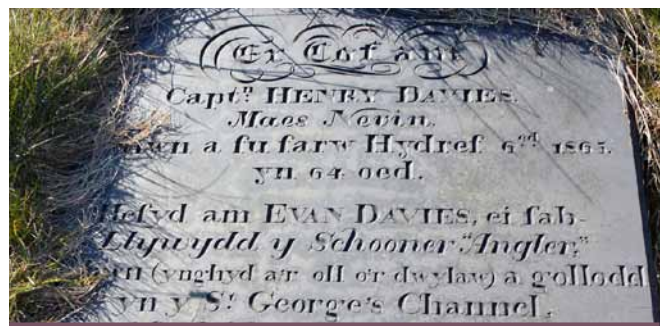 Er Cof am
Captn. HENRY DAVIES.
Maes Nevin.
a fu farw Hydref 6ed 1865.
yn 64 oed.
Hefyd am EVAN DAVIES, ei fab-
Llywydd y Schooner "Angler,"
(ynghyd a'r oll o'r dwylaw) a gollodd
yn y St. George's Channel,